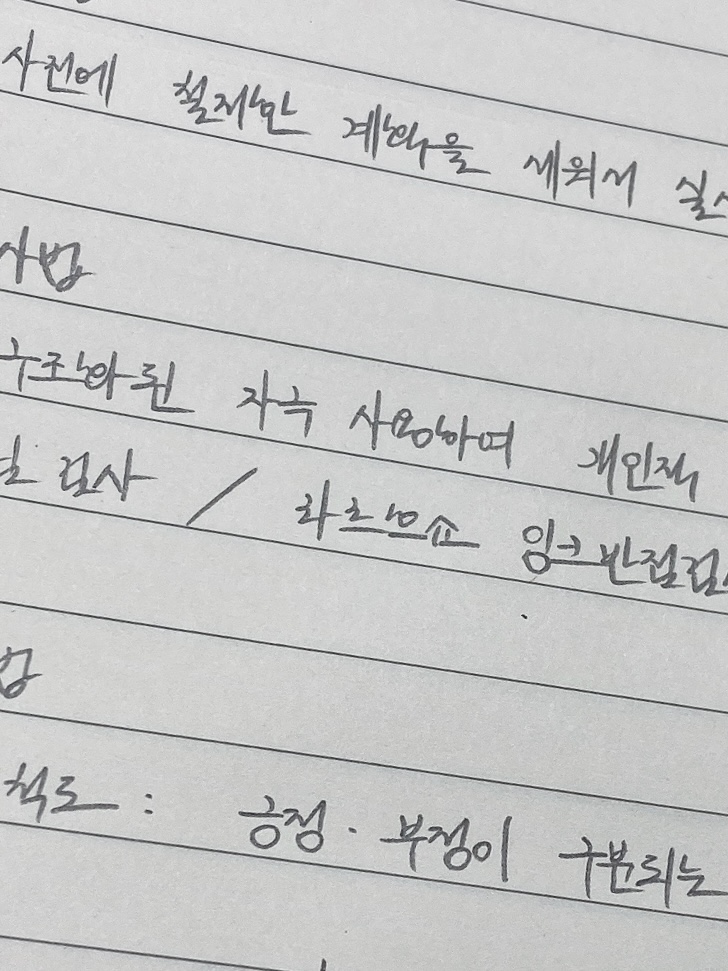 사전에 철저한 계획을 세워서 실시
사법
구조화된 자극 사용하여 개인적
검사 / 로르샤흐 잉크반점검사
법
척도 : 긍정 · 부정이 구분되는